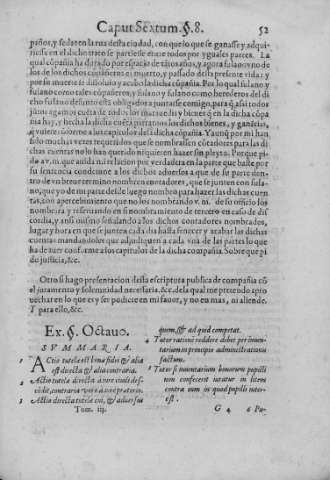 Caput Sextum. §. 8. 52
paños, y sedas en la tua desta ciudad, con que lo que se ganasse y adqui-
riesse en el dicho trato se partiesse entre todos por yguales partes. La
qual cõpañia ha durado por espacio de tãtos años, y agora fulano vno de
los de dichos cõpañeros es muerto, y passado desta presente vida: y
por su muerte se dissoluio y acabo la dicha cõpañia. Por lo qual fulano y
fulano como tales cõpañeros, y fulano y fulano como herederos del di
cho fulano defunto està obligado a juntarse comigo, para q̃ assi todos
juntos agamos cuenta de todos los
nia hay, y hecha la dicha cueta partamos los dichos bienes, y ganácias,
a los capitulos de la dicha cõpañia. Y aunq̃ por mi han
sido muchas vezes requeridos que se nombrassen cõtadores para las di
chas cuentas no lo han querido
do a v. m. que auida mi relacion por verdadera en la parte que baste por
su sentencia condenne a los dichos aduersos a que de su parte den-
tro de vn breue termino nombren contadores, que se junten con fula-
no, que yo de mi parte desde luego nombro para hazer las dichas cuen
tas, con apercebimiento que no los nombrando v. m. de su officio los
nombrara y reseruando en si nombramiento de tercero en caso de dis
cordia, y ansi mismo señalando a los dichos contadores nombrados,
lugar y hora en que se junten cada dia hasta fenecer y acabar las dichas
cuentas mandandoles que adjudiquen a cada vna de las partes lo que
ha de auer conforme a los capitulos de la dicha compañia. Sobre que pi
do justicia, &c.
Otro si hago presentacion desta escriptura publica de compañia cõ
el juramento y solemnidad necessaria, &c. de la qual me pretendo apro
uechar en lo que es y ser podiere en mi fauor, y no en mas, ni aliende.
Y para ello, &c.
Ex. §. Octauo.
SVMMARIA.
1 Actio tutelæ est bona fidei & alia
est directa & alia contraria.
2 Actio tutela directa
3 Actio directa tutela cui, & aduersus
quem, & ad quid competat.
4 Tutor rationem reddere debet per inuen-
tarium in principio administrationis
factum.
5 Tutor si inuentarium bonorum pupilli
non confecerit iuratur in litem
contra eum in quod pupilli inter-
est.
Tom. iij. G 4 6 Po-